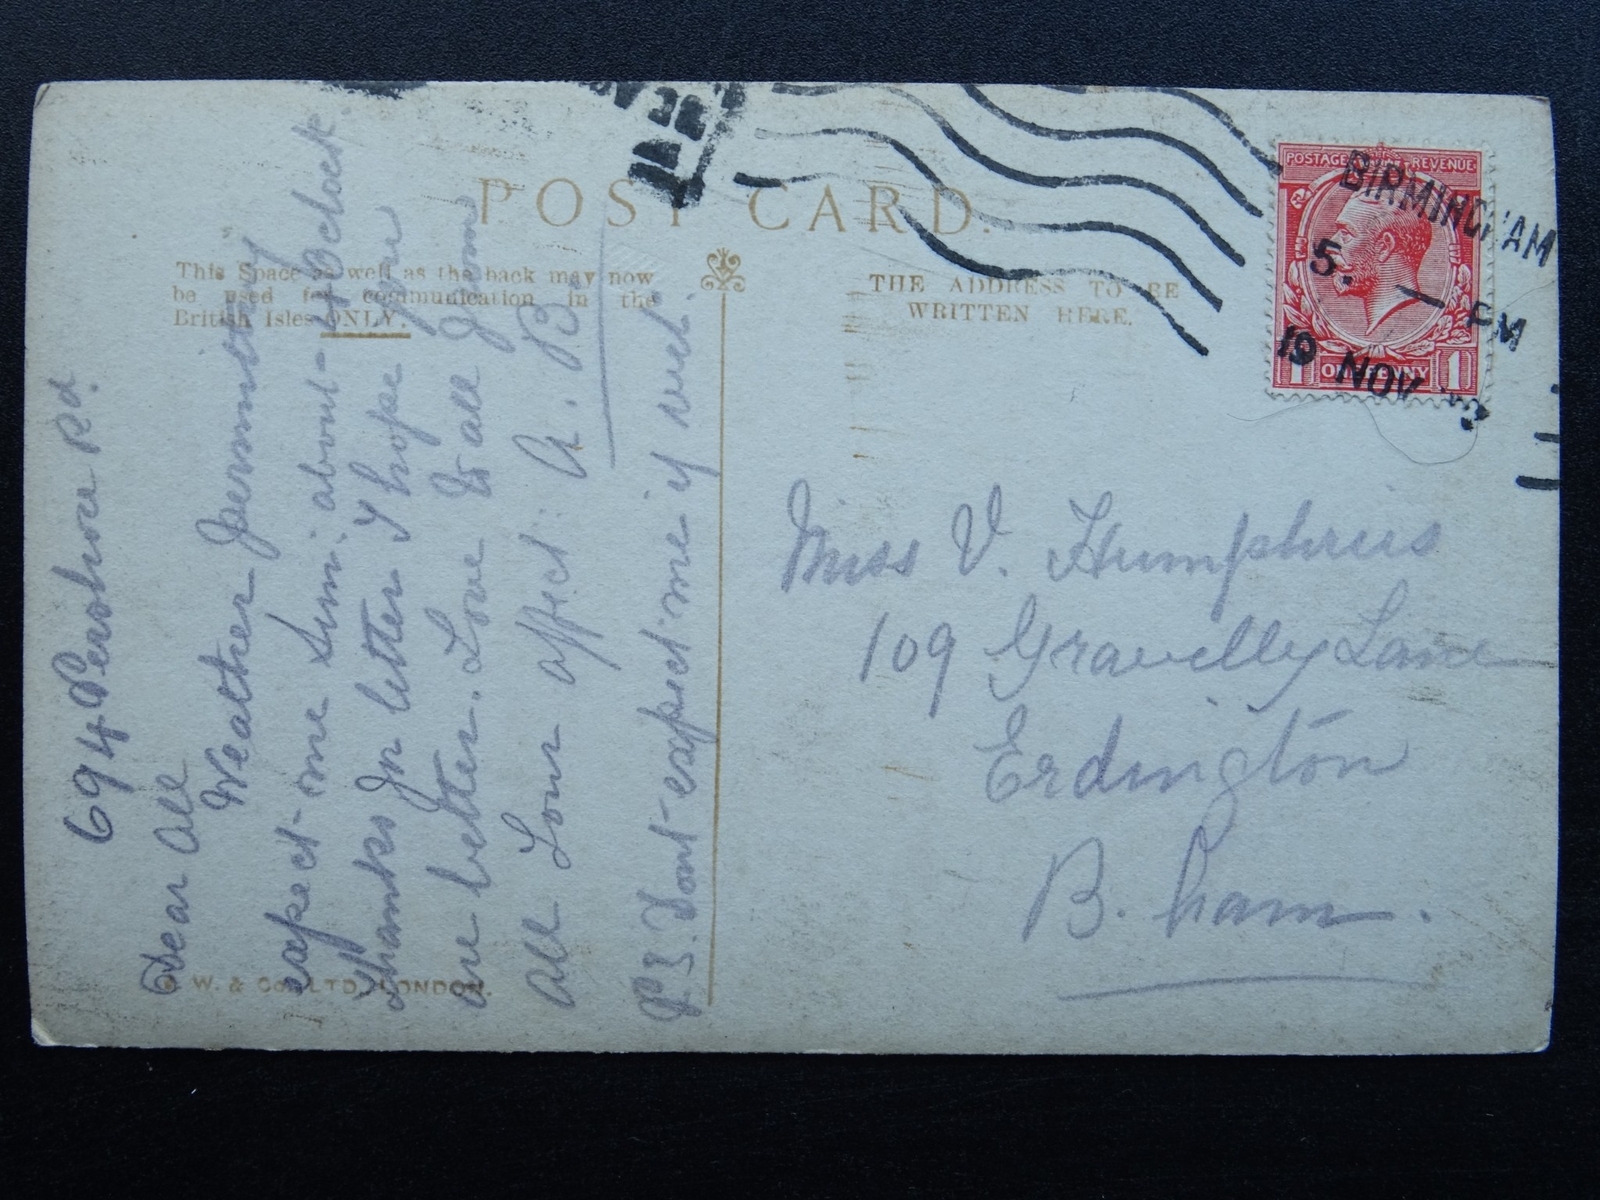 POST CARD.
This Space as well as the back may now
be used for communication in the
British Isles ONLY.
THE ADDRESS TO BE
WRITTEN HERE.
POSTAGE REVENUE
1 ONE PENNY 1
BIRMINGHAM
5. — PM
19 NOV
694 Pershore Rd.
Dear All
Weather permitting
expect me Sun. about 4 Oclock.
Thanks for letter I hope you
are better. Love to all from
All Your affect. A. B.
P.S. Dont expect me if wet.
Miss V. Humphries
109 Gravelly Lane
Erdington
B. ham.
W. & Co. LTD. LONDON.